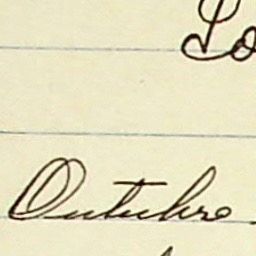 Lo
Outubro